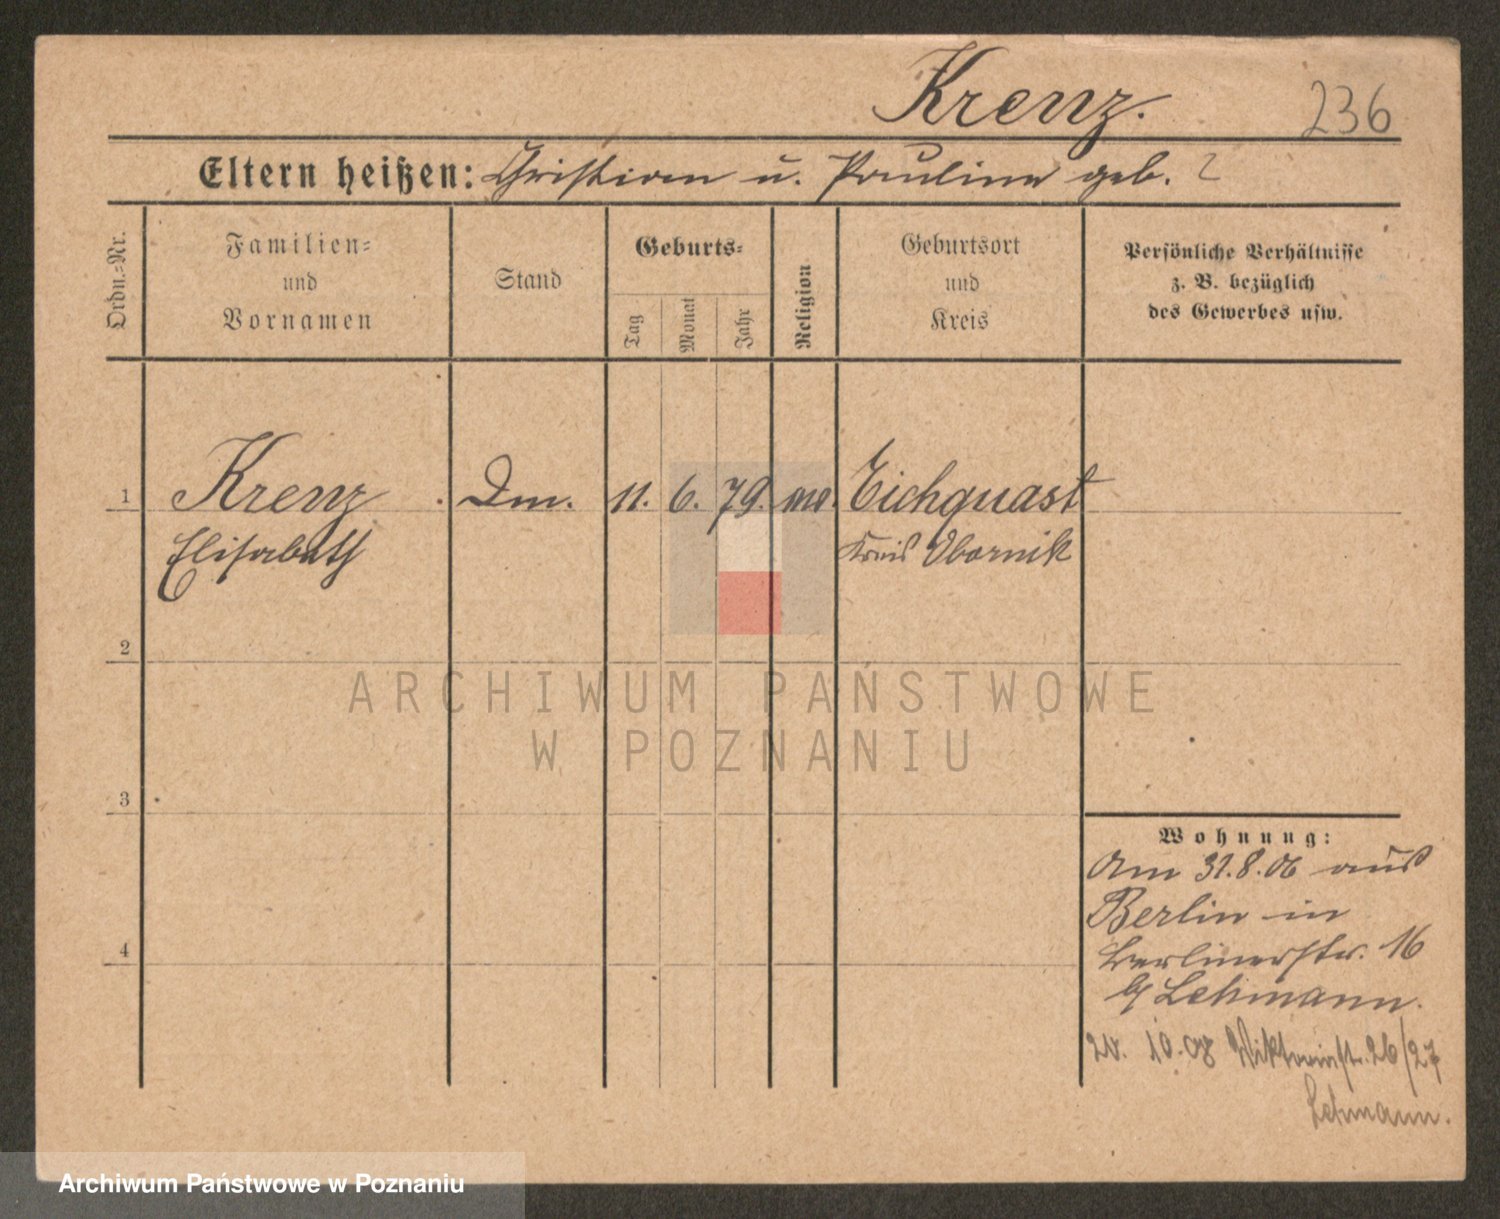 Krenz. 236
Eltern heißen: Christian u. Pauline geb. ?
Ordn.=Nr.
Familien=
und
Vornamen
Stand
Geburts=
Tag
Monat
Jahr
Religion
Geburtsort
und
Kreis
Persönliche Verhältnisse
z. B. bezüglich
des Gewerbes usw.
1 Krenz Dm. 11. 6. 79. Eichquast
Elisabeth Kreis Obornik
2
ARCHIWUM PAŃSTWOWE
W POZNANIU
3
Wohnung:
Am 31.8.06 aus
Berlin in
4
Berlinerstr. 16
b/ Lehmann.
10.08 Viktoriastr. 26/27
Lehmann.
Archiwum Państwowe w Poznaniu